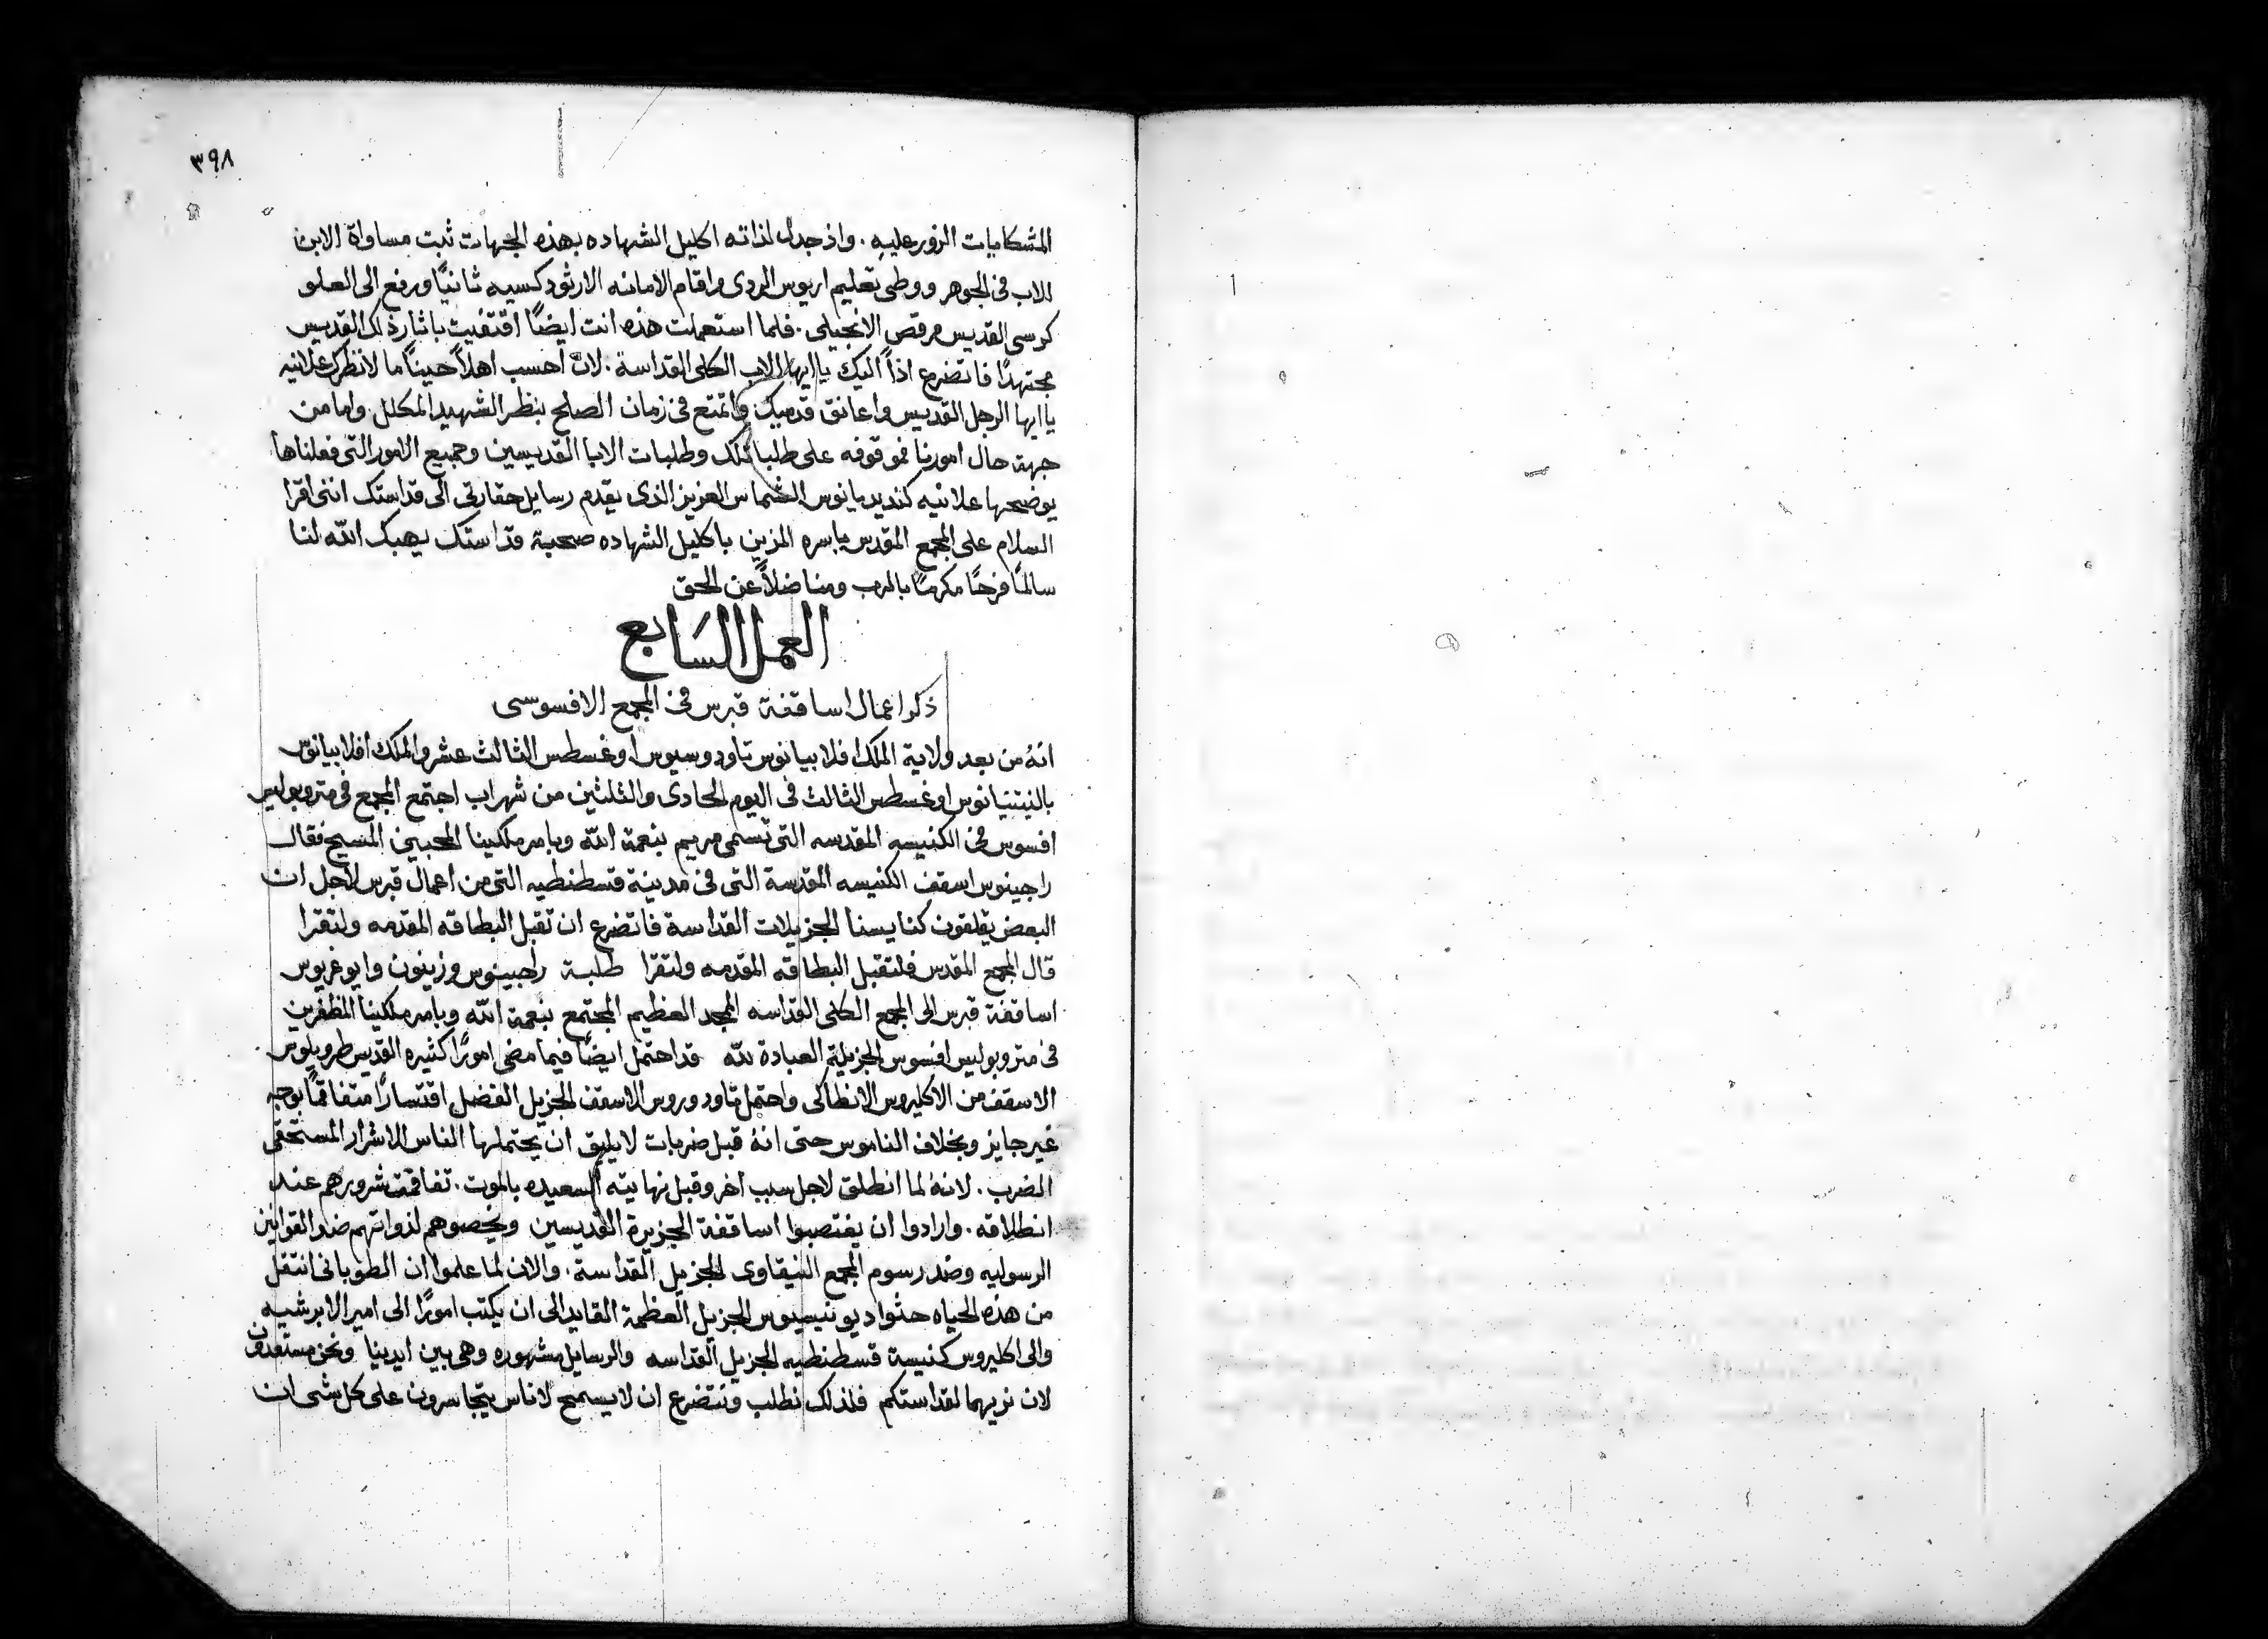 ٣٩٨
المشكايات الزور عليه . واذ جدل لذاته اكليل الشهاده بهذه الجهات ثبت مساواة الابن
للاب فى الجوهر ووطى تعليم اريوس الردى واقام الامانه الارثودكسيه ثانيًا ورفع الى العلو
كرسى القديس مرقص الانجيلى . فلما استعملت هذه انت ايضًا اقتفيت باثار ذلك القديس
مجتهدًا فاتضرع اذاً اليك يا ايها الاب الكلى القداسة . لان احسب اهلاً حينًا ما لانظرك علانيه
يا ايها الرجل القديس واعانق قدميك واتمتع فى زمان الصلح بنظر الشهيد المكلل . واما من
جهة حال امورنا فموقوفه على طلباتك وطلبات الابا القديسين وجميع الامور التى فعلناها
يوضحها علانيه كنديديانوس الشماس العزيز الذى يقدم رسايل حقارتى الى قداستك اننى اقرا
السلام على المجمع المقدس باسره المزين باكليل الشهاده صحبة قداستك يهبك الله لنا
سالمًا فرحًا مكرمًا بالرب ومناضلاً عن الحق
العمل السَابع
ذكر اعمال اساقفة قبرس فى المجمع الافسوسى
انهُ من بعد ولاية الملك افلابيانوس تاودوسيوس اوغسطس الثالث عشر والملك افلابيانوس
بالنيتنيانوس اوغسطس الثالث فى اليوم الحادى والثلثين من شهر اب اجتمع المجمع فى متروبوليس
افسوس فى الكنيسه المقدسه التى تسمى مريم بنعمة الله وبامر ملكينا المحبين المسيح فقال
راجينوس اسقف الكنيسه المقدسة التى فى مدينة قسطنطيه التى من اعمال قبرس لاجل ان
البعض يقلقون كنايسنا الجزيلات القداسة فاتضرع ان تقبل البطاقه المقدمه ولتقرا
قال المجمع المقدس فلتقبل البطاقه المقدمه ولتقرا طلبة راجبينوس وزينون وايوغريوس
اساقفة قبرس الى المجمع الكلى القداسه المجد العظيم المجتمع بنعمة الله وبامر ملكينا المظفرين
فى متروبوليس افسوس الجزيلة العبادة لله قد احتمل ايضًا فيما مضى امورًا كثيره القديس طرويلوس
الاسقف من الاكليروس الانطاكى واحتمل تاودوروس الاسقف الجزيل الفضل اقتسارًا متفاقمًا بوجه
غير جايز وبخلاف الناموس حتى انهُ قبل ضربات لا يليق ان يحتملها الناس الاشرار المستحقى
الضرب . لانهُ لما انطلق لاجل سبب اخر وقبل نهايته السعيده بالموت . تفاقمت شرورهم عند
انطلاقه . وارادوا ان يغتصبوا اساقفة الجزيرة القديسين ويخصوهم لذواتهم ضد القوانين
الرسوليه وضد رسوم المجمع النيقاوى الجزيل القداسة . والان لما علموا ان الطوبانى انتقل
من هذه الحياه حثوا ديونيسيوس الجزيل العظمة القايد الى ان يكتب امورًا الى امير الابرشيه
والى اكليروس كنيسة قسطنطيه الجزيل القداسه والرسايل مشهوره وهى بين ايدينا ونحن مستعدون
لان نريهما لقداستكم فلذلك نطلب ونتضرع ان لا يسمح لاناس يتجاسرون على كل شى ان